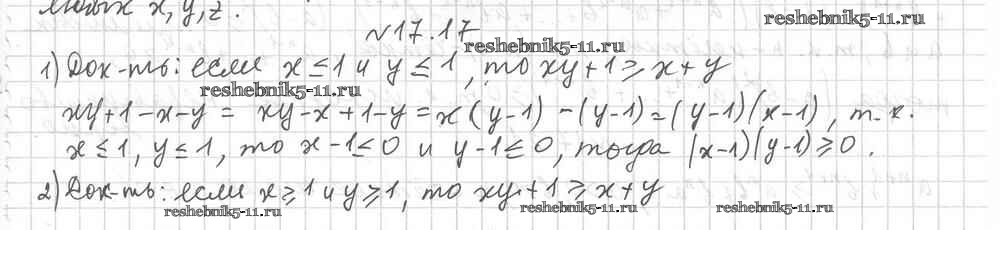 любых x, y, z.
№17.17
reshebnik5-11.ru
reshebnik5-11.ru
1) Док-ть: если x ≤ 1 и y ≤ 1, то xy + 1 ≥ x + y
reshebnik5-11.ru
xy+1-x-y = xy-x+1-y = x(y-1) -(y-1) = (y-1)(x-1), т.к.
x ≤ 1, y ≤ 1, то x-1 ≤ 0 и y-1 ≤ 0, тогда (x-1)(y-1) ≥ 0.
2) Док-ть: если x ≥ 1 и y ≥ 1, то xy + 1 ≥ x + y
reshebnik5-11.ru
reshebnik5-11.ru
reshebnik5-11.ru